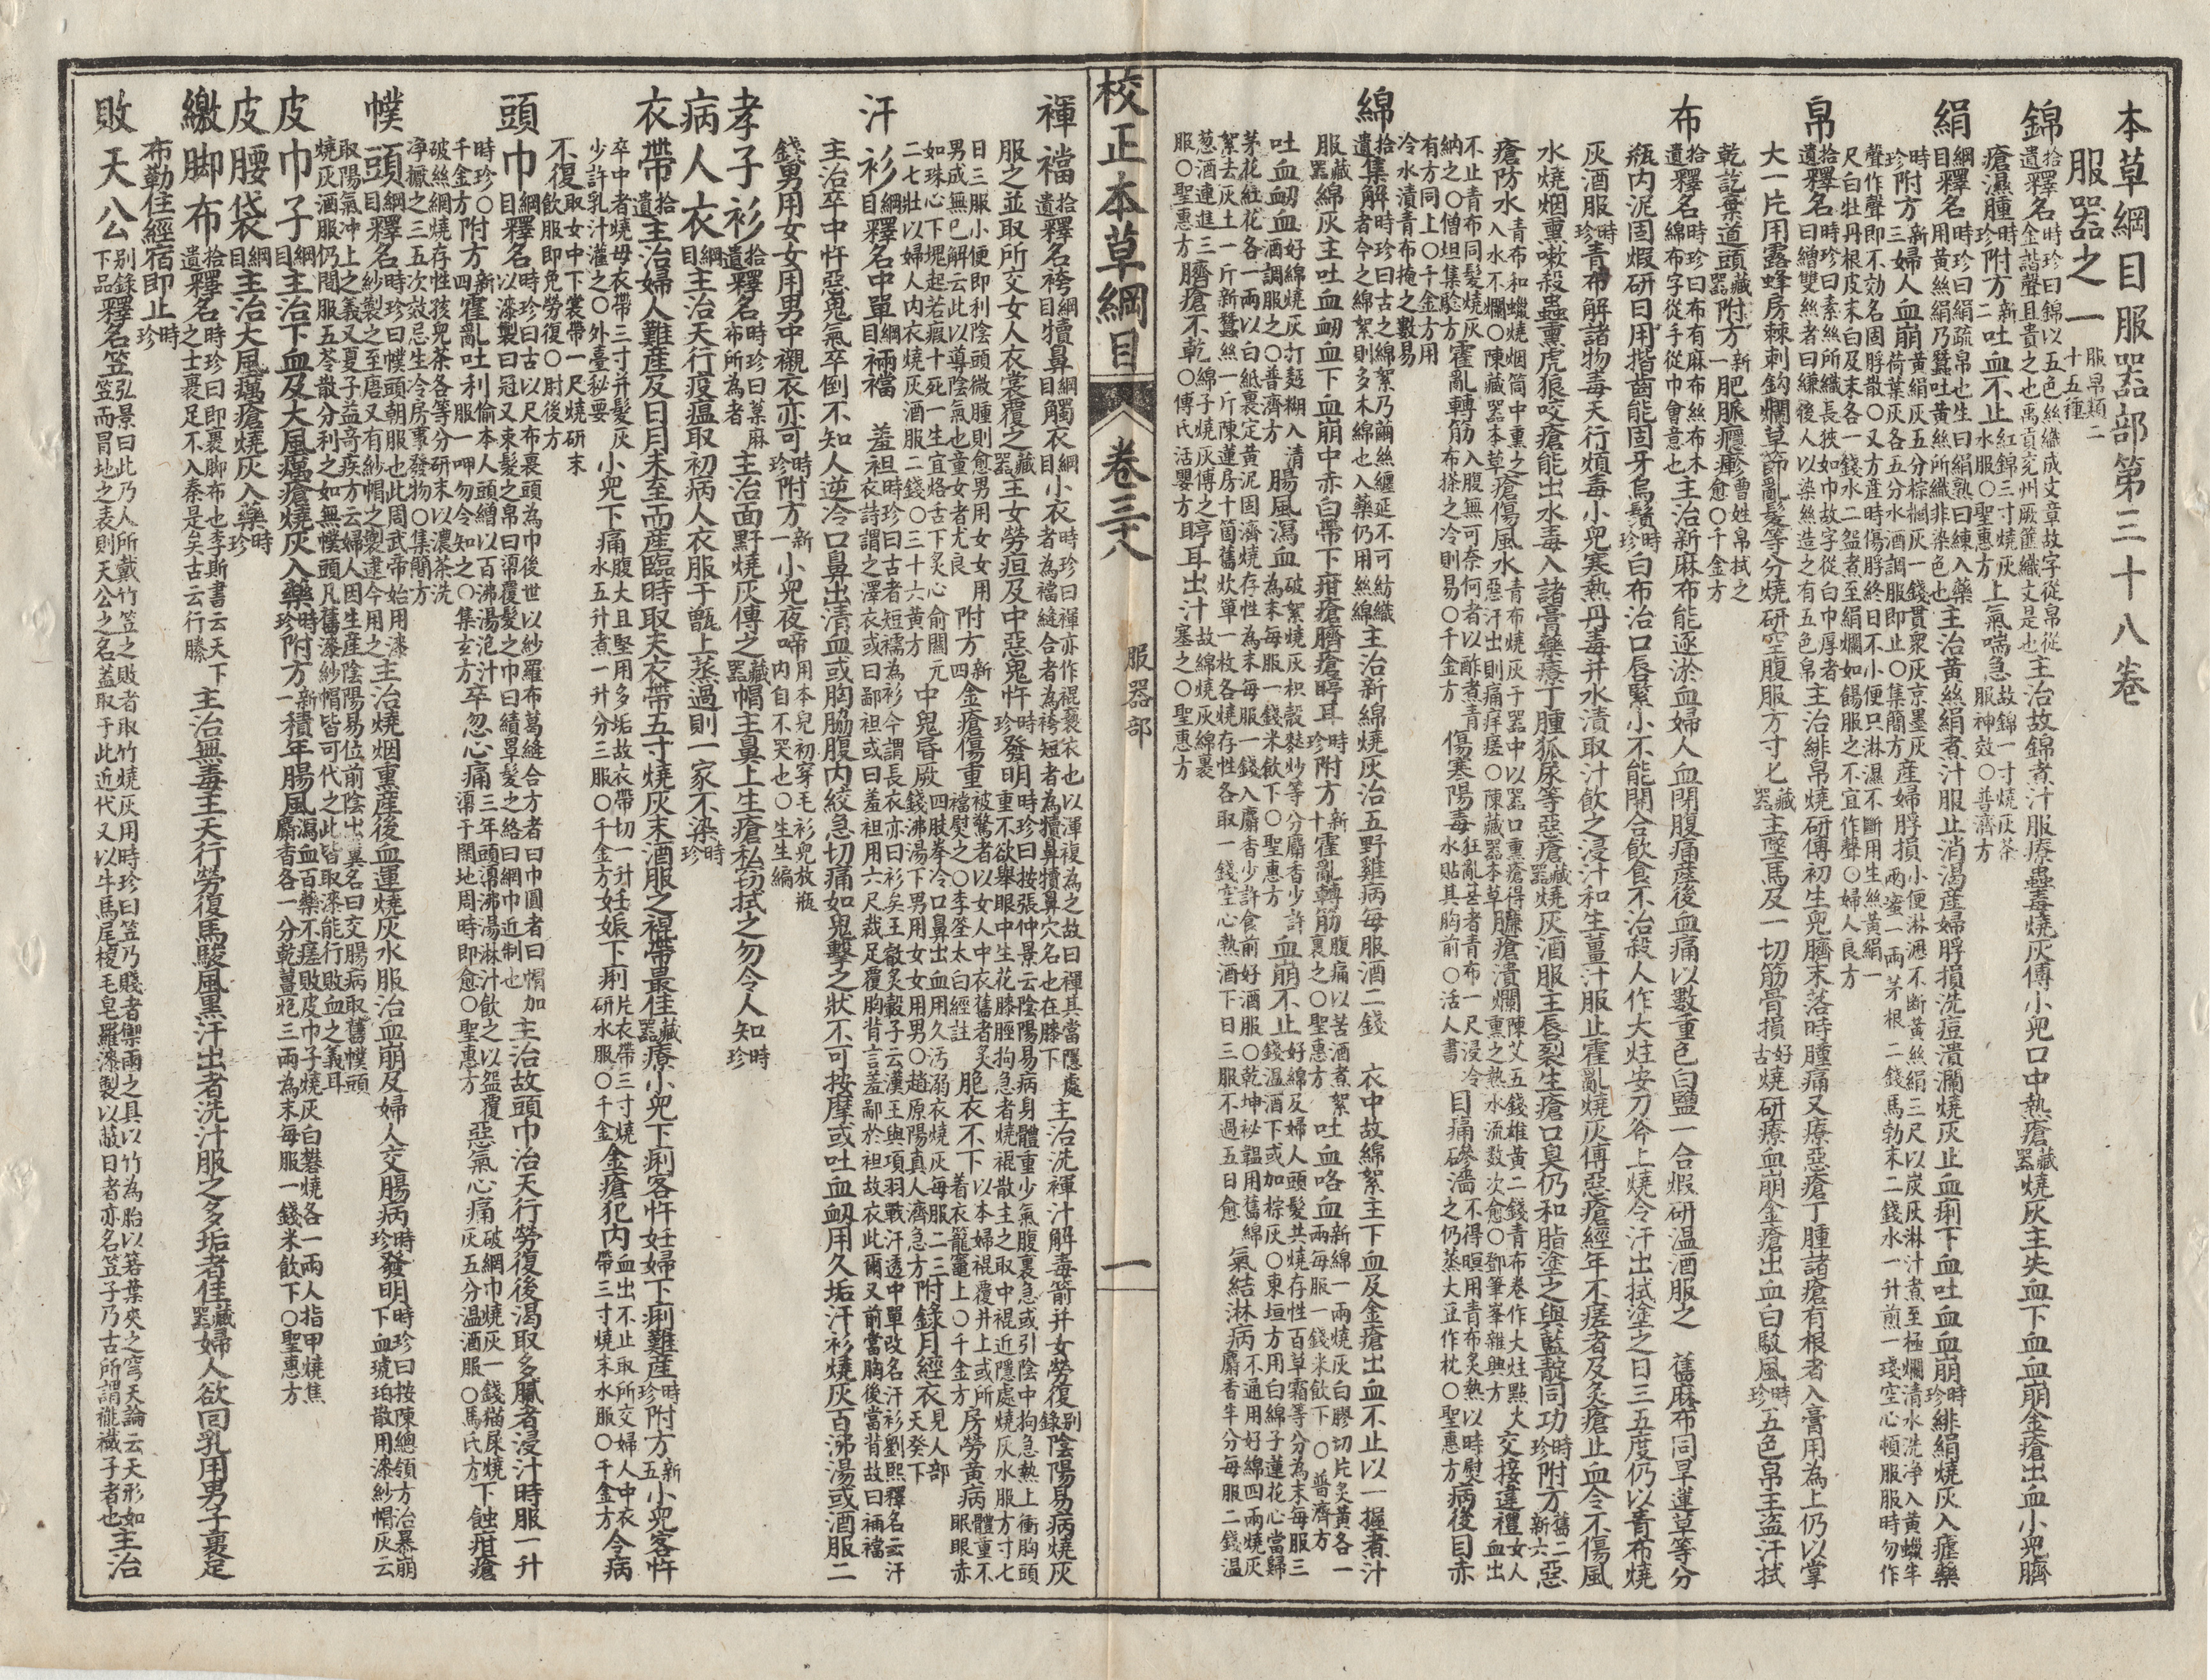 本草綱目服器部第三十八卷
服器之一服帛類二十五種
錦拾遺釋名時珍曰錦以五色絲織成文章故字從帛從金諧聲且貴之也禹貢兗州厥篚織文是也主治故錦煮汁服療蠱毒燒灰傅小兒口中熱瘡藏器燒灰主失血下血血崩金瘡出血小兒臍
瘡濕腫時珍附方新二吐血不止紅錦三寸燒灰水服○聖惠方上氣喘急故錦一寸燒灰茶服神效○普濟方
絹綱目釋名時珍曰絹疏帛也生曰絹熟曰練入藥用黃絲絹乃蠶吐黃絲所織非染色也主治黃絲絹煮汁服止消渴產婦脬損洗痘潰爛燒灰止血痢下血吐血血崩時珍緋絹燒灰入瘧藥
時珍附方新三婦人血崩黃絹灰五分棕櫚灰一錢貫衆灰京墨灰荷葉灰各五分水酒調服即止○集簡方產婦脬損小便淋瀝不斷黃絲絹三尺以炭灰淋汁煮至極爛清水洗淨入黃蠟半兩蜜一兩茅根二錢馬勃末二錢水一升煎一盞空心頓服服時勿作
聲作聲即不効名固脬散○又方產時傷脬終日不小便只淋濕不斷用生絲黃絹一尺白牡丹根皮末白及末各一錢水二盌煮至絹爛如餳服之不宜作聲○婦人良方
帛拾遺釋名時珍曰素絲所織長狹如巾故字從白巾厚者曰繒雙絲者曰縑後人以染絲造之有五色帛主治緋帛燒研傅初生兒臍未落時腫痛又療惡瘡丁腫諸瘡有根者入膏用為上仍以掌
大一片用露蜂房棘刺鈎爛草節亂髮等分燒研空腹服方寸匕藏器主墜馬及一切筋骨損好古燒研療血崩金瘡出血白駁風時珍五色帛主盜汗拭
乾訖棄道頭藏器附方新一肥脈癮疹曹姓帛拭之愈○千金方
布拾遺釋名時珍曰布有麻布絲布木綿布字從手從巾會意也主治新麻布能逐淤血婦人血閉腹痛產後血痛以數重包白鹽一合煆研溫酒服之　舊麻布同旱蓮草等分
瓶內泥固煆研日用揩齒能固牙烏鬚時珍白布治口唇緊小不能開合飲食不治殺人作大炷安刀斧上燒令汗出拭塗之日三五度仍以青布燒
灰酒服時珍青布解諸物毒天行煩毒小兒寒熱丹毒并水漬取汁飲之浸汁和生薑汁服止霍亂燒灰傅惡瘡經年不瘥者及灸瘡止血令不傷風
水燒烟熏嗽殺蟲熏虎狼咬瘡能出水毒入諸膏藥療丁腫狐尿等惡瘡藏器燒灰酒服主唇裂生瘡口臭仍和脂塗之與藍靛同功時珍附方舊二新六惡
瘡防水青布和蠟燒烟筒中熏之入水不爛○陳藏器本草瘡傷風水青布燒灰于器中以器口熏瘡得惡汗出則痛痒瘥○陳藏器本草臁瘡潰爛陳艾五錢雄黃二錢青布卷作大炷點火熏之熱水流数次愈○鄧筆峯雜興方交接違禮女人血出
不止青布同髮燒灰納之○僧坦集驗方霍亂轉筋入腹無可奈何者以酢煮青布搽之冷則易○千金方傷寒陽毒狂亂甚者青布一尺浸冷水貼其胸前○活人書目痛磣濇不得瞑用青布炙熱以時熨之仍蒸大豆作枕○聖惠方病後目赤
有方同上○千金方用冷水漬青布掩之數易
綿拾遺集解時珍曰古之綿絮乃繭絲纏延不可紡織者今之綿絮則多木綿也入藥仍用絲綿主治新綿燒灰治五野雞病每服酒二錢　衣中故綿絮主下血及金瘡出血不止以一握煮汁
服藏器綿灰主吐血衂血下血崩中赤白帶下疳瘡臍瘡聤耳時珍附方新十霍亂轉筋腹痛以苦酒煮絮裹之○聖惠方吐血咯血新綿一兩燒灰白膠切片炙黃各一兩每服一錢米飲下○普濟方
吐血衂血好綿燒灰打麪糊入清酒調服之○普濟方腸風瀉血破絮燒灰枳殼麩炒等分麝香少許為末每服一錢米飲下○聖惠方血崩不止好綿及婦人頭髮共燒存性百草霜等分為末每服三錢溫酒下或加棕灰○東垣方用白綿子蓮花心當歸
茅花紅花各一兩以白紙裹定黃泥固濟燒存性為末每服一錢入麝香少許食前好酒服○乾坤秘韞用舊綿絮去灰土一斤新蠶絲一斤陳蓮房十箇舊炊單一枚各燒存性各取一錢空心熱酒下日三服不過五日愈氣結淋病不通用好綿四兩燒灰麝香半分每服二錢溫
葱酒連進三服○聖惠方臍瘡不乾綿子燒灰傅之○傅氏活嬰方聤耳出汁故綿燒灰綿裹塞之○聖惠方
校正本草綱目　卷三十八　服器部　一
褌襠拾遺釋名袴綱目犢鼻綱目觸衣綱目小衣時珍曰褌亦作裩褻衣也以渾複為之故曰褌其當隱處者為襠縫合者為袴短者為犢鼻犢鼻穴名也在膝下主治洗褌汁解毒箭并女勞復別錄陰陽易病燒灰
服之並取所交女人衣裳覆之藏器主女勞疸及中惡鬼忤時珍發明時珍曰按張仲景云陰陽易病身體重少氣腹裏急或引陰中拘急熱上衝胸頭重不欲舉眼中生花膝脛拘急者燒裩散主之取中裩近隱處燒灰水服方寸七
日三服小便即利陰頭微腫則愈男用女女用男成無己解云此以導陰氣也童女者尤良附方新四金瘡傷重被驚者以女人中衣舊者炙襠熨之○李筌太白經註胞衣不下以本婦裩覆井上或所着衣籠竈上○千金方房勞黃病體重不眠眼赤
如珠心下塊起若瘕十死一生宜烙舌下灸心俞關元二七壯以婦人內衣燒灰酒服二錢○三十六黃方中鬼昏厥四肢拳冷口鼻出血用久汚溺衣燒灰每服二三錢沸湯下男用女女用男○趙原陽真人濟急方附錄月經衣見人部天癸下
汗衫綱目釋名中單綱目裲襠　羞袒時珍曰古者短襦為衫今謂長衣亦曰衫矣王叡炙轂子云漢王與項羽戰汗透中單改名汗衫劉熙釋名云汗衣詩謂之澤衣或曰鄙袒或曰羞袒用六尺裁足覆胸背言羞鄙於袒故衣此爾又前當胸後當背故曰裲襠
主治卒中忤惡鬼氣卒倒不知人逆冷口鼻出清血或胸脇腹內絞急切痛如鬼擊之狀不可按摩或吐血衂用久垢汗衫燒灰百沸湯或酒服二
錢男用女女用男中襯衣亦可時珍附方新一小兒夜啼用本兒初穿毛衫兒放瓶內自不哭也○生生編
孝子衫拾遺釋名時珍曰菒麻布所為者主治面䵟燒灰傅之藏器帽主鼻上生瘡私窃拭之勿令人知時珍
病人衣綱目主治天行疫瘟取初病人衣服于甑上蒸過則一家不染時珍
衣帶拾遺主治婦人難產及日月未至而產臨時取夫衣帶五寸燒灰末酒服之裩帶最佳藏器療小兒下痢客忤妊婦下痢難產時珍附方新五小兒客忤
卒中者燒母衣帶三寸并髮灰少許乳汁灌之○外臺秘要小兒下痛腹大且堅用多垢故衣帶切一升水五升煮一升分三服○千金方妊娠下痢片衣帶三寸燒研水服○千金金瘡犯內血出不止取所交婦人中衣帶三寸燒末水服○千金方令病
不復取女中下裳帶一尺燒研末飲服即免勞復○肘後方
頭巾綱目釋名時珍曰古以尺布裹頭為巾後世以紗羅布葛縫合方者曰巾圓者曰帽加以漆製曰冠又束髮之帛曰䍦覆髮之巾曰幘罩髮之絡曰網巾近制也主治故頭巾治天行勞復後渴取多膩者浸汁時服一升
時珍○千金方附方新四霍亂吐利偷本人頭繒以百沸湯泡汁服一呷勿令知之○集玄方卒忽心痛三年頭䍦沸湯淋汁飲之以盌覆䍦于閑地周時即愈○聖惠方惡氣心痛破網巾燒灰一錢猫屎燒灰五分溫酒服○馬氏方下蝕疳瘡
破絲網燒存性孩兒茶各等分研末以濃茶洗淨摻之三五次效忌生冷房事發物○集簡方
幞頭綱目釋名時珍曰幞頭朝服也北周武帝始用漆紗製之至唐又有紗帽之製逮今用之主治燒烟熏產後血運燒灰水服治血崩及婦人交腸病時珍發明時珍曰按陳總領方治暴崩下血琥珀散用漆紗帽灰云
取陽氣冲上之義又夏子益竒疾方云婦人因生產陰陽易位前陰出糞名曰交腸病取舊幞頭燒灰酒服仍間服五苓散分利之如無幞頭凡舊漆紗帽皆可代之此皆取漆能行敗血之義耳
皮巾子綱目主治下血及大風癘瘡燒灰入藥時珍附方新一積年腸風瀉血百藥不瘥敗皮巾子燒灰白礬燒各一兩人指甲燒焦麝香各一分乾薑炮三兩為末每服一錢米飲下○聖惠方
皮腰袋綱目主治大風癘瘡燒灰入藥時珍
繳脚布拾遺釋名時珍曰即裹脚布也李斯書云天下之士裹足不入秦是矣古云行縢主治無毒主天行勞復馬駿風黑汗出者洗汁服之多垢者佳藏器婦人欲回乳用男子裹足
布勒住經宿即止時珍
敗天公別錄下品釋名笠弘景曰此乃人所戴竹笠之敗者取竹燒灰用時珍曰笠乃賤者禦雨之具以竹為胎以箬葉夾之穹天論云天形如笠而冒地之表則天公之名蓋取于此近代又以牛馬尾椶毛皂羅漆製以蔽日者亦名笠子乃古所謂襶襳子者也主治